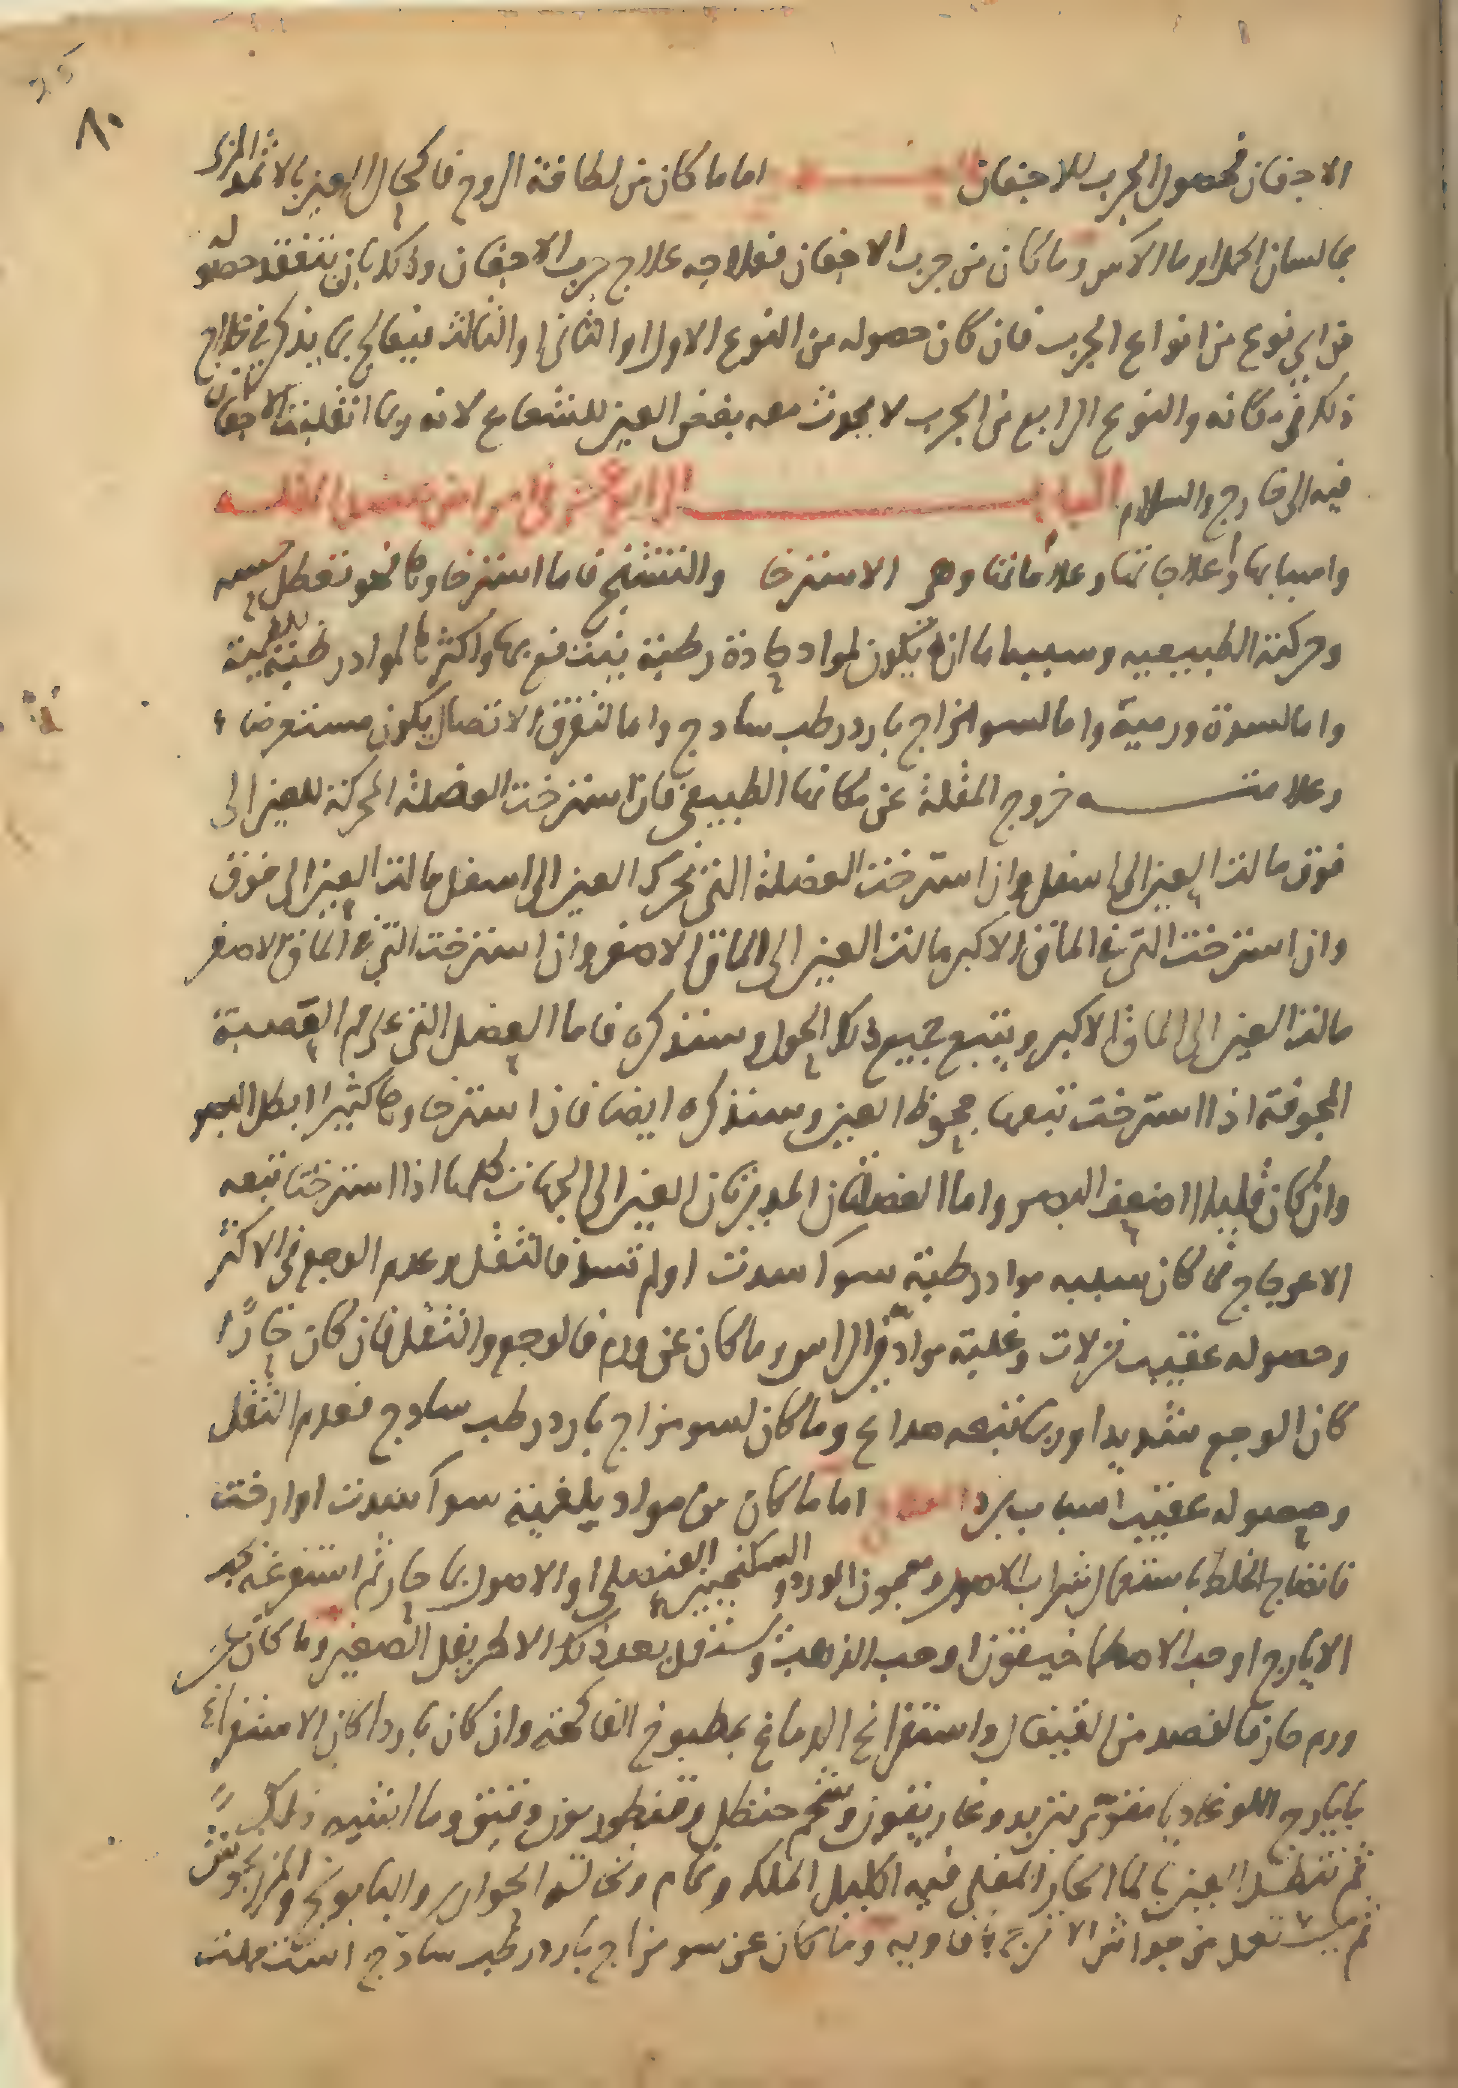 ٨٠
الاجفان فحصول الجرب للاجفان اما ما كان من لطافة الروح فاكحال العين بالاثمد المربى
بما لسان الحمل او ماء الآس وما كان من جرب الاجفان فعلاجه علاج جرب الاجفان وذلك بان يتفقد حصوله
من اي نوع من انواع الجرب فان كان حصوله من النوع الاول او الثاني او الثالث فيعالج بما يذكر في علاج
ذلك في مكانه والنوع الرابع من الجرب لا يحدث معه بغض العين للشعاع لانه ربما انقلبت الاجفان
فيه الى خارج والسلام الباب الرابع عشر في امراض عضل المقلة
واسبابها وعلاجاتها وعلاماتها وهي الاسترخا والتشنج فاما استرخاوها فهو تعطل حسه
وحركته الطبيعيه وسببها اما ان تكون لمواد حادة رطبة ينتقع بها واكثرها لمواد رطبة بلغمية
واما لسدة ورمية واما لسو مزاج بارد رطب سادج واما لتفرق الاتصال يكون مستعرضا
وعلامته خروج المقلة عن مكانها الطبيعي فان استرخت العضلة المحركة للعين الى
فوق مالت العين الى اسفل وان استرخت العضلة التي تحرك العين الى اسفل مالت العين الى فوق
وان استرخت التي في الماق الاكبر مالت العين الى الماق الاصغر وان استرخت التي في الماق الاصغر
مالت العين الى الماق الاكبر ويتبع جميع ذلك الحول وسنذكره فاما العضل التي على فم القصبة
المجوفة اذا استرخت تبعها جحوظ العين وسنذكره ايضا فان استرخاوها كثيرا ابطل البصر
وان كان قليلا اضعف البصر واما العضلتان المديرتان العين الى الجهات كلها اذا استرختا تبعه
الاعوجاج فما كان سببه مواد رطبة سوا سدت او لم تسد فالثقل وعدم الوجع في الاكثر
وحصوله عقيب نزلات وغلبة مواد في الراس وما كان عن ورم فالوجع والثقل فان كان حارًا
كان الوجع شديدا وربما تبعه صداع وما كان لسو مزاج بارد رطب سادج فعدم الثقل
وحصوله عقيب اسباب برد العلاج اما ما كان من مواد بلغمية سوا سدت او ارخت
فانضاج الخلط باستعمال شراب الاصول ومعجون الورد والسكنجبين العنصلي او الاصول بما حار ثم استفرغه بحب
الايارج او حب الاصطماخيقون او حب الذهب وتستعمل بعد ذلك الاطريفل الصغير وما كان عن
ورم حار فالفصد من القيفال واستفراغ الدماغ بمطبوخ الفاكهة وان كان باردا كان الاستفراغ
بايارج اللوغاديا مقوّى بتربد وغاريقون وشحم حنظل وقنطوريون دقيق وما اشبه ذلك
ثم تنطل العين بالما الحار المغلي فيه اكليل الملك ونمام ونخالة الحواري والبابونج والمرزنجوش
ثم يستعمل من جوارش الاترج بافاويه وما كان عن سو مزاج بارد رطب سادج استعملت